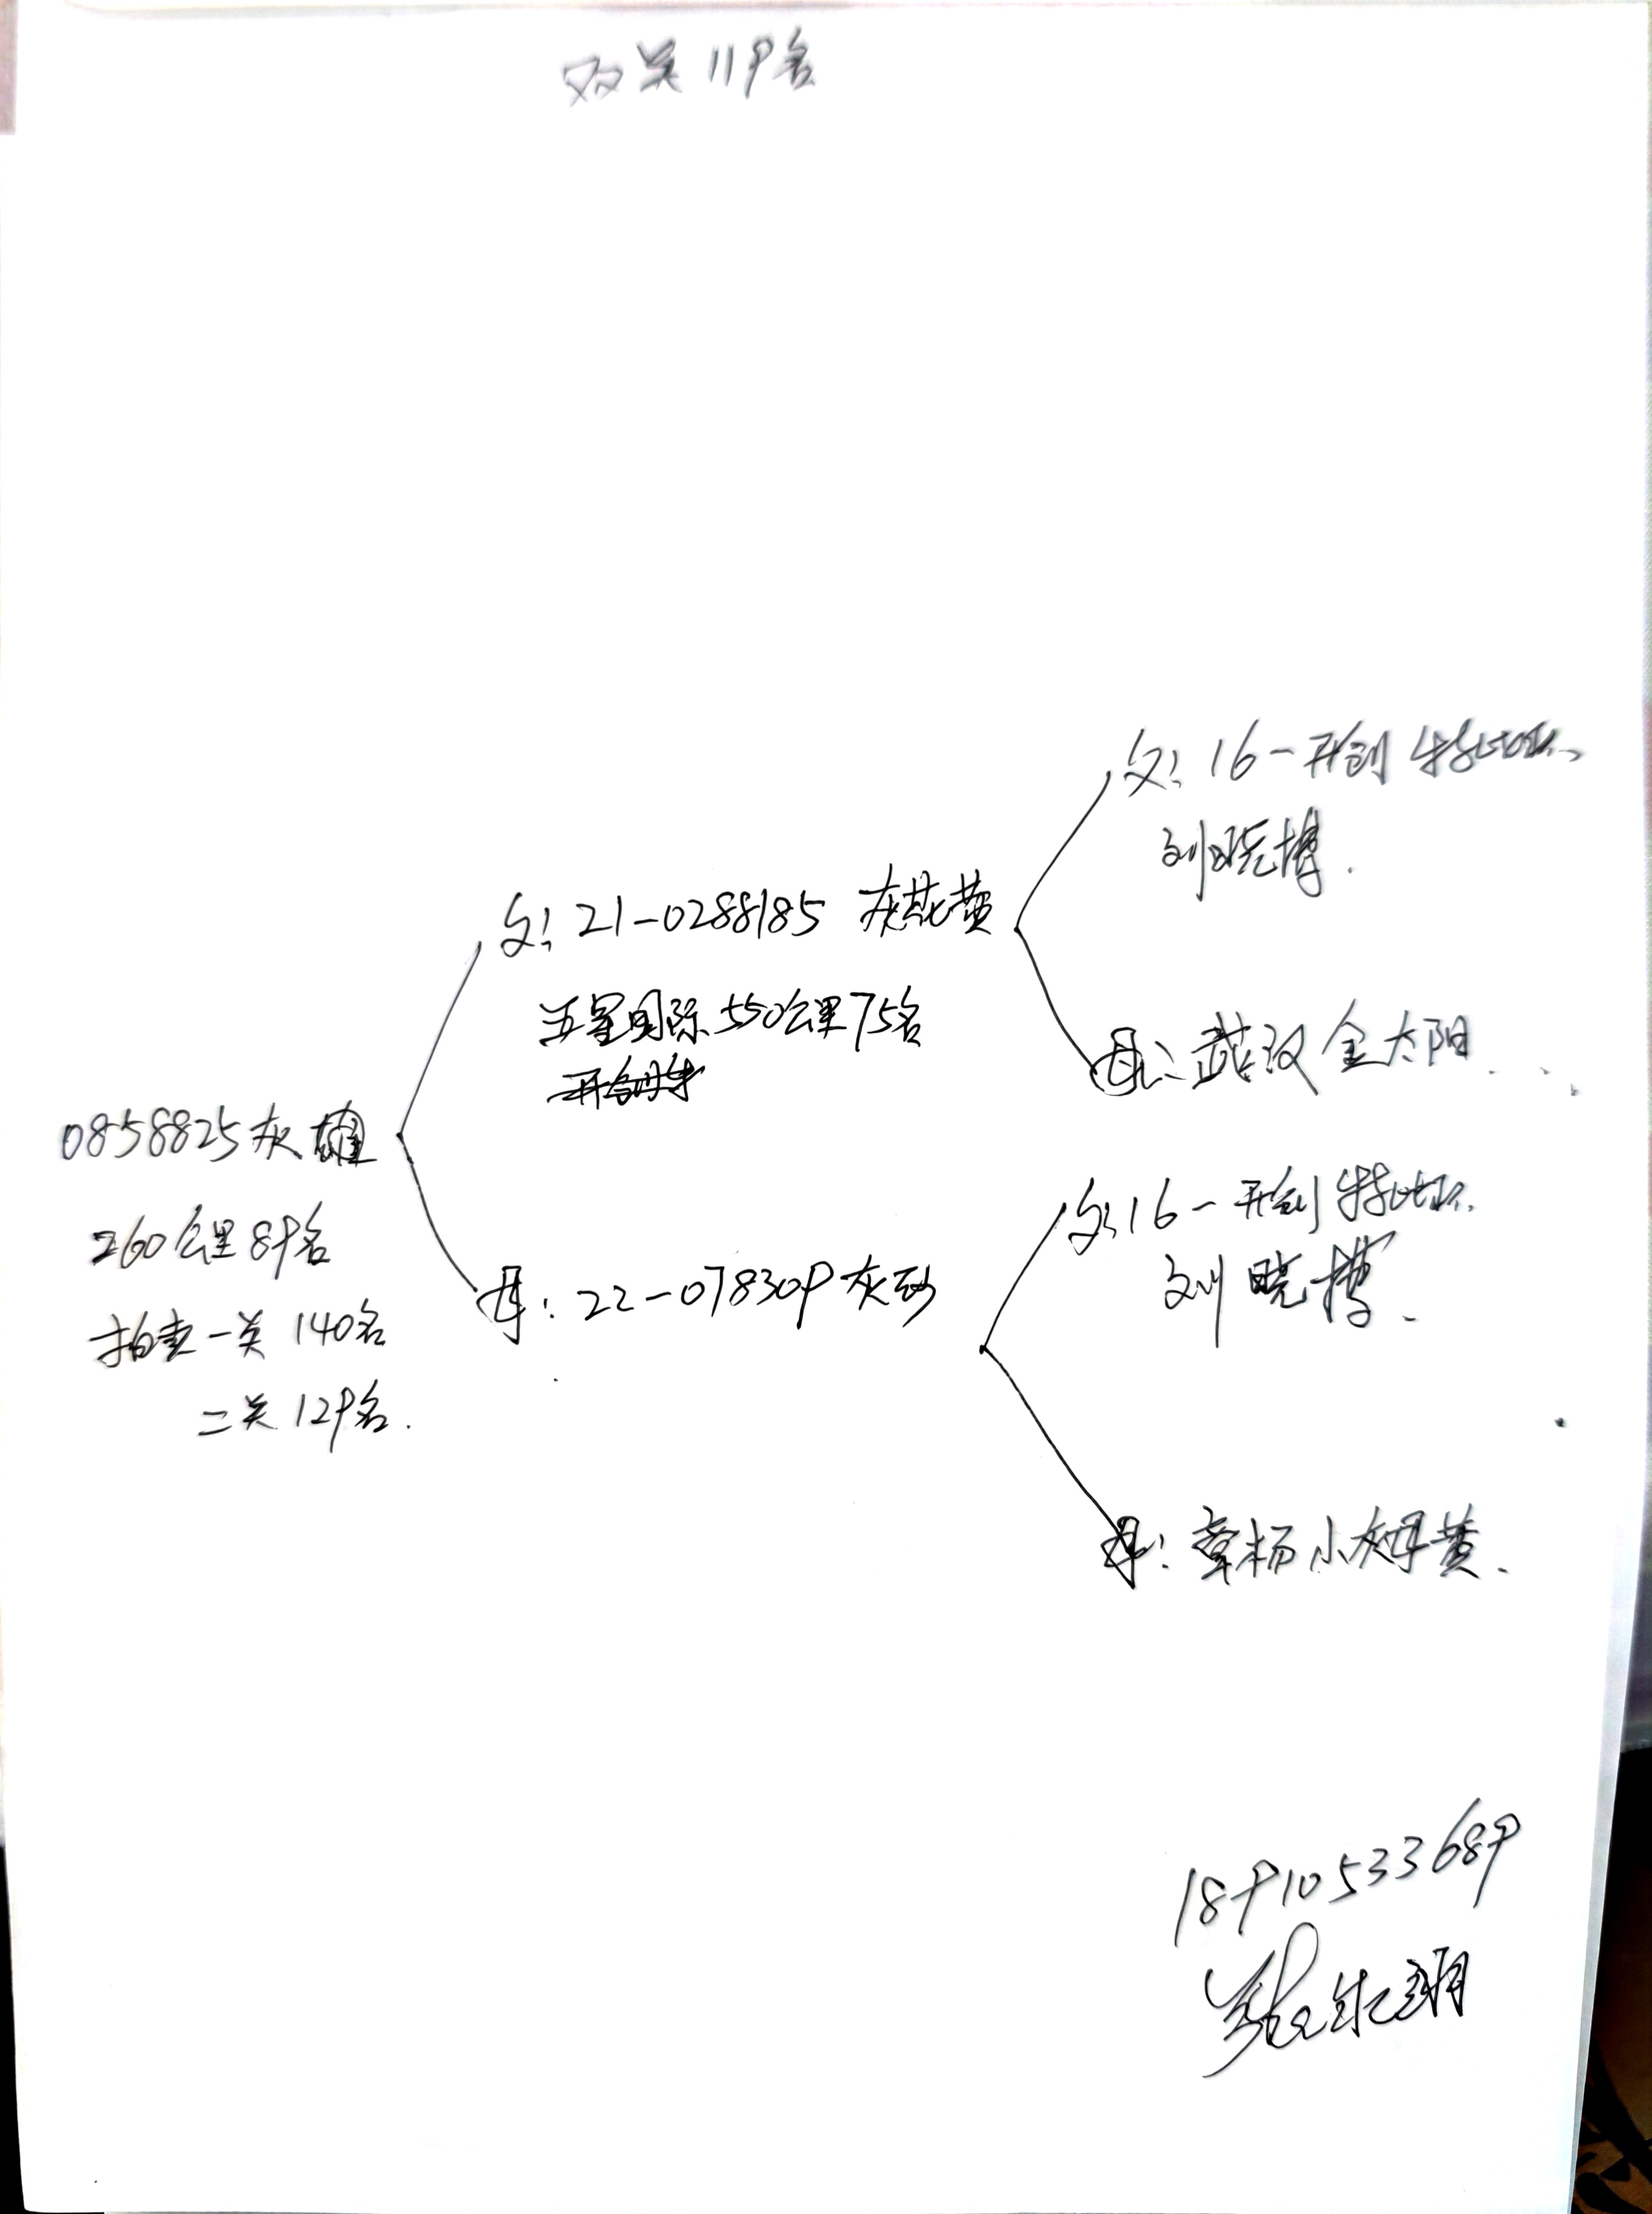 双关119名
父：16-开创特比环
刘晓博.
父：21-0288185 灰花黄
五星国际550公里75名
母：武汉金太阳.
0858825灰雄
260公里89名
拍卖一关140名
二关129名.
母：22-078309灰砂
父：16-开创特比环.
刘晓博.
母：章杨小姆黄.
18910533689